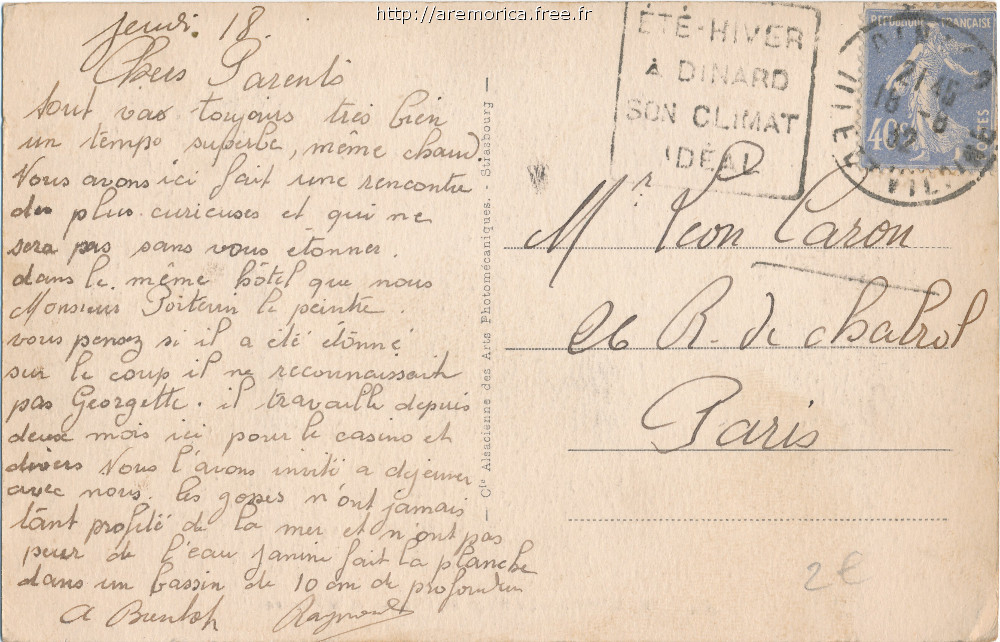 http://aremorica.free.fr
jeudi 18
Chers Parents
tout va toujours très bien
un temps superbe, même chaud.
Nous avons ici fait une rencontre
des plus curieuses et qui ne
sera pas sans vous étonner
dans le même hôtel que nous
Monsieur Poitevin le peintre.
vous pensez si il a été étonné
sur le coup il ne reconnaissait
pas Georgette. il travaille depuis
deux mois ici pour le casino et
divers Nous l'avons invité a dejeuner
avec nous. les gosses n'ont jamais
tant profité de la mer et n'ont pas
peur de l'eau Janine fait la planche
dans un bassin de 10 cm de profondeur
a Bientot Raymond
Cie Alsacienne des Arts Photomécaniques. - Strasbourg
ÉTÉ-HIVER
À DINARD
SON CLIMAT
IDÉAL
RÉPUBLIQUE FRANÇAISE
DINARD
21 45
18 -8
32
40
POSTES
ILLE ET VILAINE
Mr Leon Caron
26 R. de Chabrol
Paris
2€